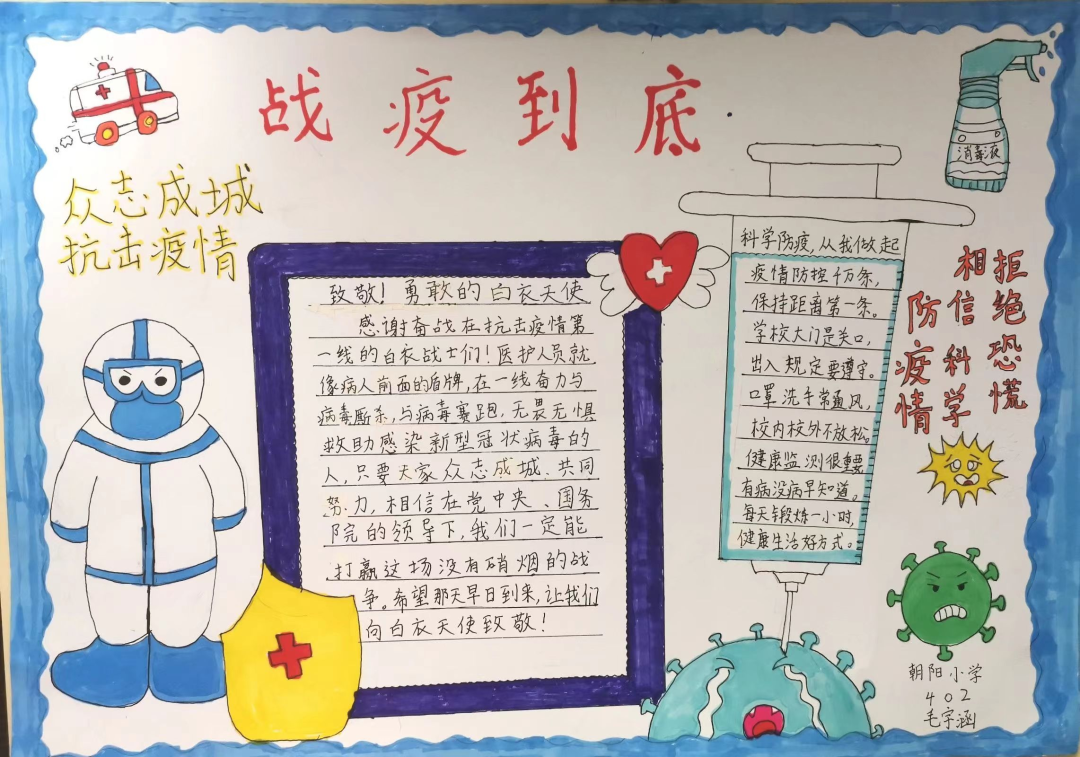 战疫到底
众志成城
抗击疫情
消毒液
致敬！勇敢的白衣天使
感谢奋战在抗击疫情第
一线的白衣战士们！医护人员就
像病人前面的盾牌，在一线奋力与
病毒厮杀，与病毒赛跑，无畏无惧
救助感染新型冠状病毒的
人，只要大家众志成城、共同
努力，相信在党中央、国务
院的领导下，我们一定能
打赢这场没有硝烟的战
争。希望那天早日到来，让我们
向白衣天使致敬！
科学防疫，从我做起
疫情防控千万条，
保持距离第一条。
学校大门是关口，
出入规定要遵守。
口罩洗手常通风，
校内校外不放松。
健康监测很重要
有病没病早知道。
每天锻炼一小时，
健康生活好方式。
拒绝恐慌
相信科学
防疫情
朝阳小学
402
毛宇涵